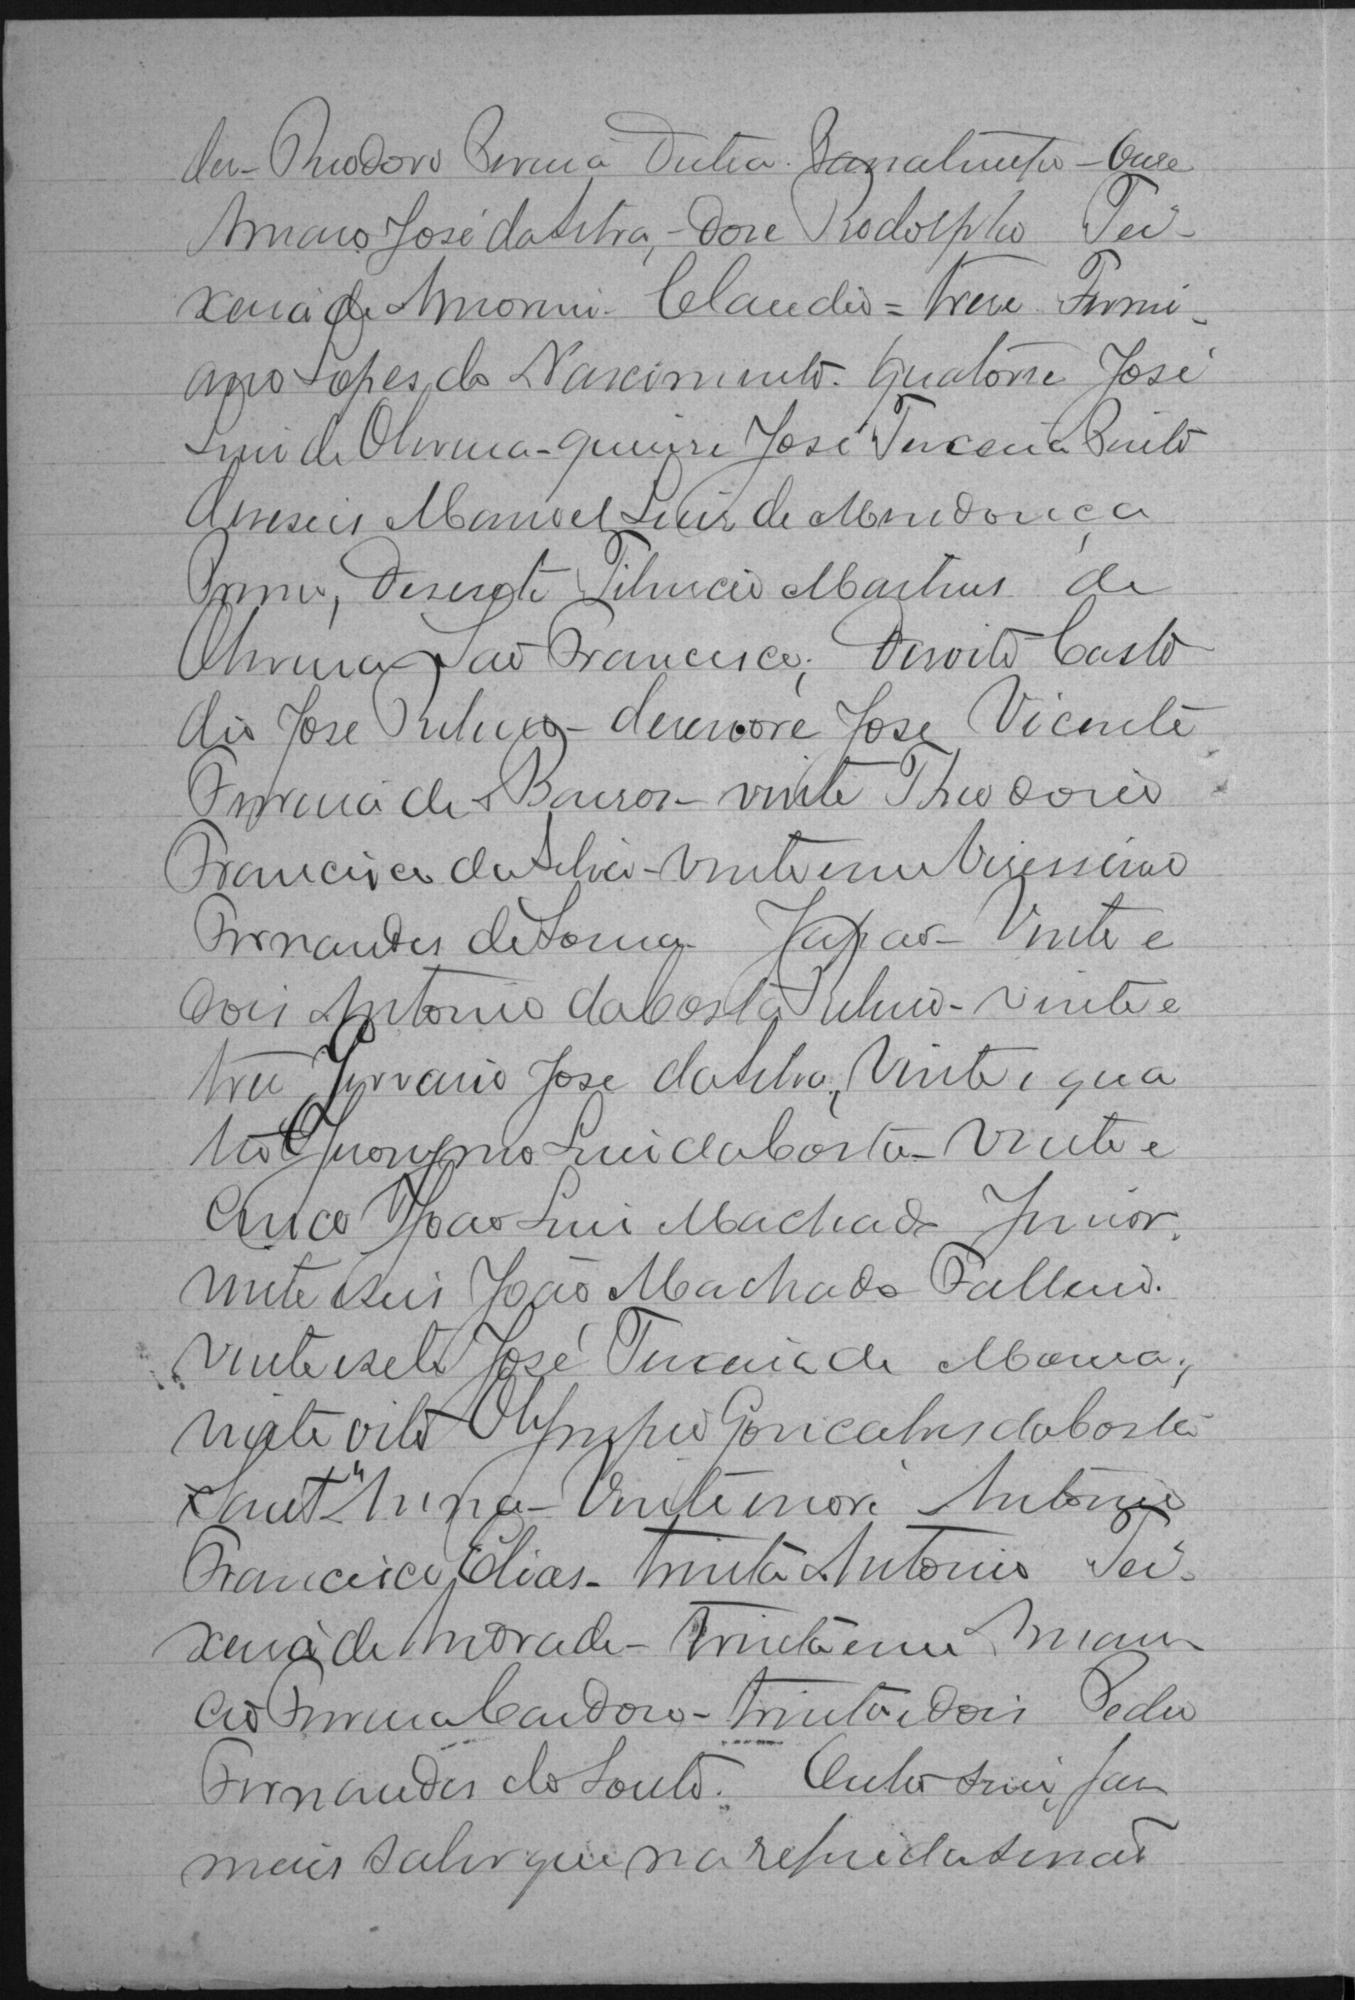 dez - Theodoro Pereira Dutra. - Onze
Amaro José da Silva, - Doze Rodolpho Tei-
xeira de Amorim. Claudio = treze Firmi-
ano Lopes do Nascimento. Quatorze José
Luiz de Oliveira - quinze José Teixeira Pinto
dezeseis Manoel Luiz de Mendonça
Primo, Dezesete Tiburcio Martins de
Oliveira São Francisco; Dezoito Custo
dio José Ribeiro - dezenove José Vicente
Ferreira de Barros - vinte Theodorio
Francisco da Silva - vinte e um Virissimo
Fernandes de Souza Vinte e
dois Antonio da Costa Ribeiro - vinte e
tres Gervasio José da Silva, Vinte e qua
tro Jeronymo Luiz da Costa - Vinte e
Cinco João Luiz Machado Junior.
vinte e seis João Machado
vinte e sete José Teixeira de Moura;
vinte oito Olympio Goncalves da Costa
Sant'Anna - Vinte nove Antonio
Francisco Elias - trinta Antonio Tei-
xeira de Andrade - trinta e um Aman
cio Ferreira Cardoso - trinta e dois Pedro
Fernandes do Souto. Outro sim, faz
mais saber que na referida sessão